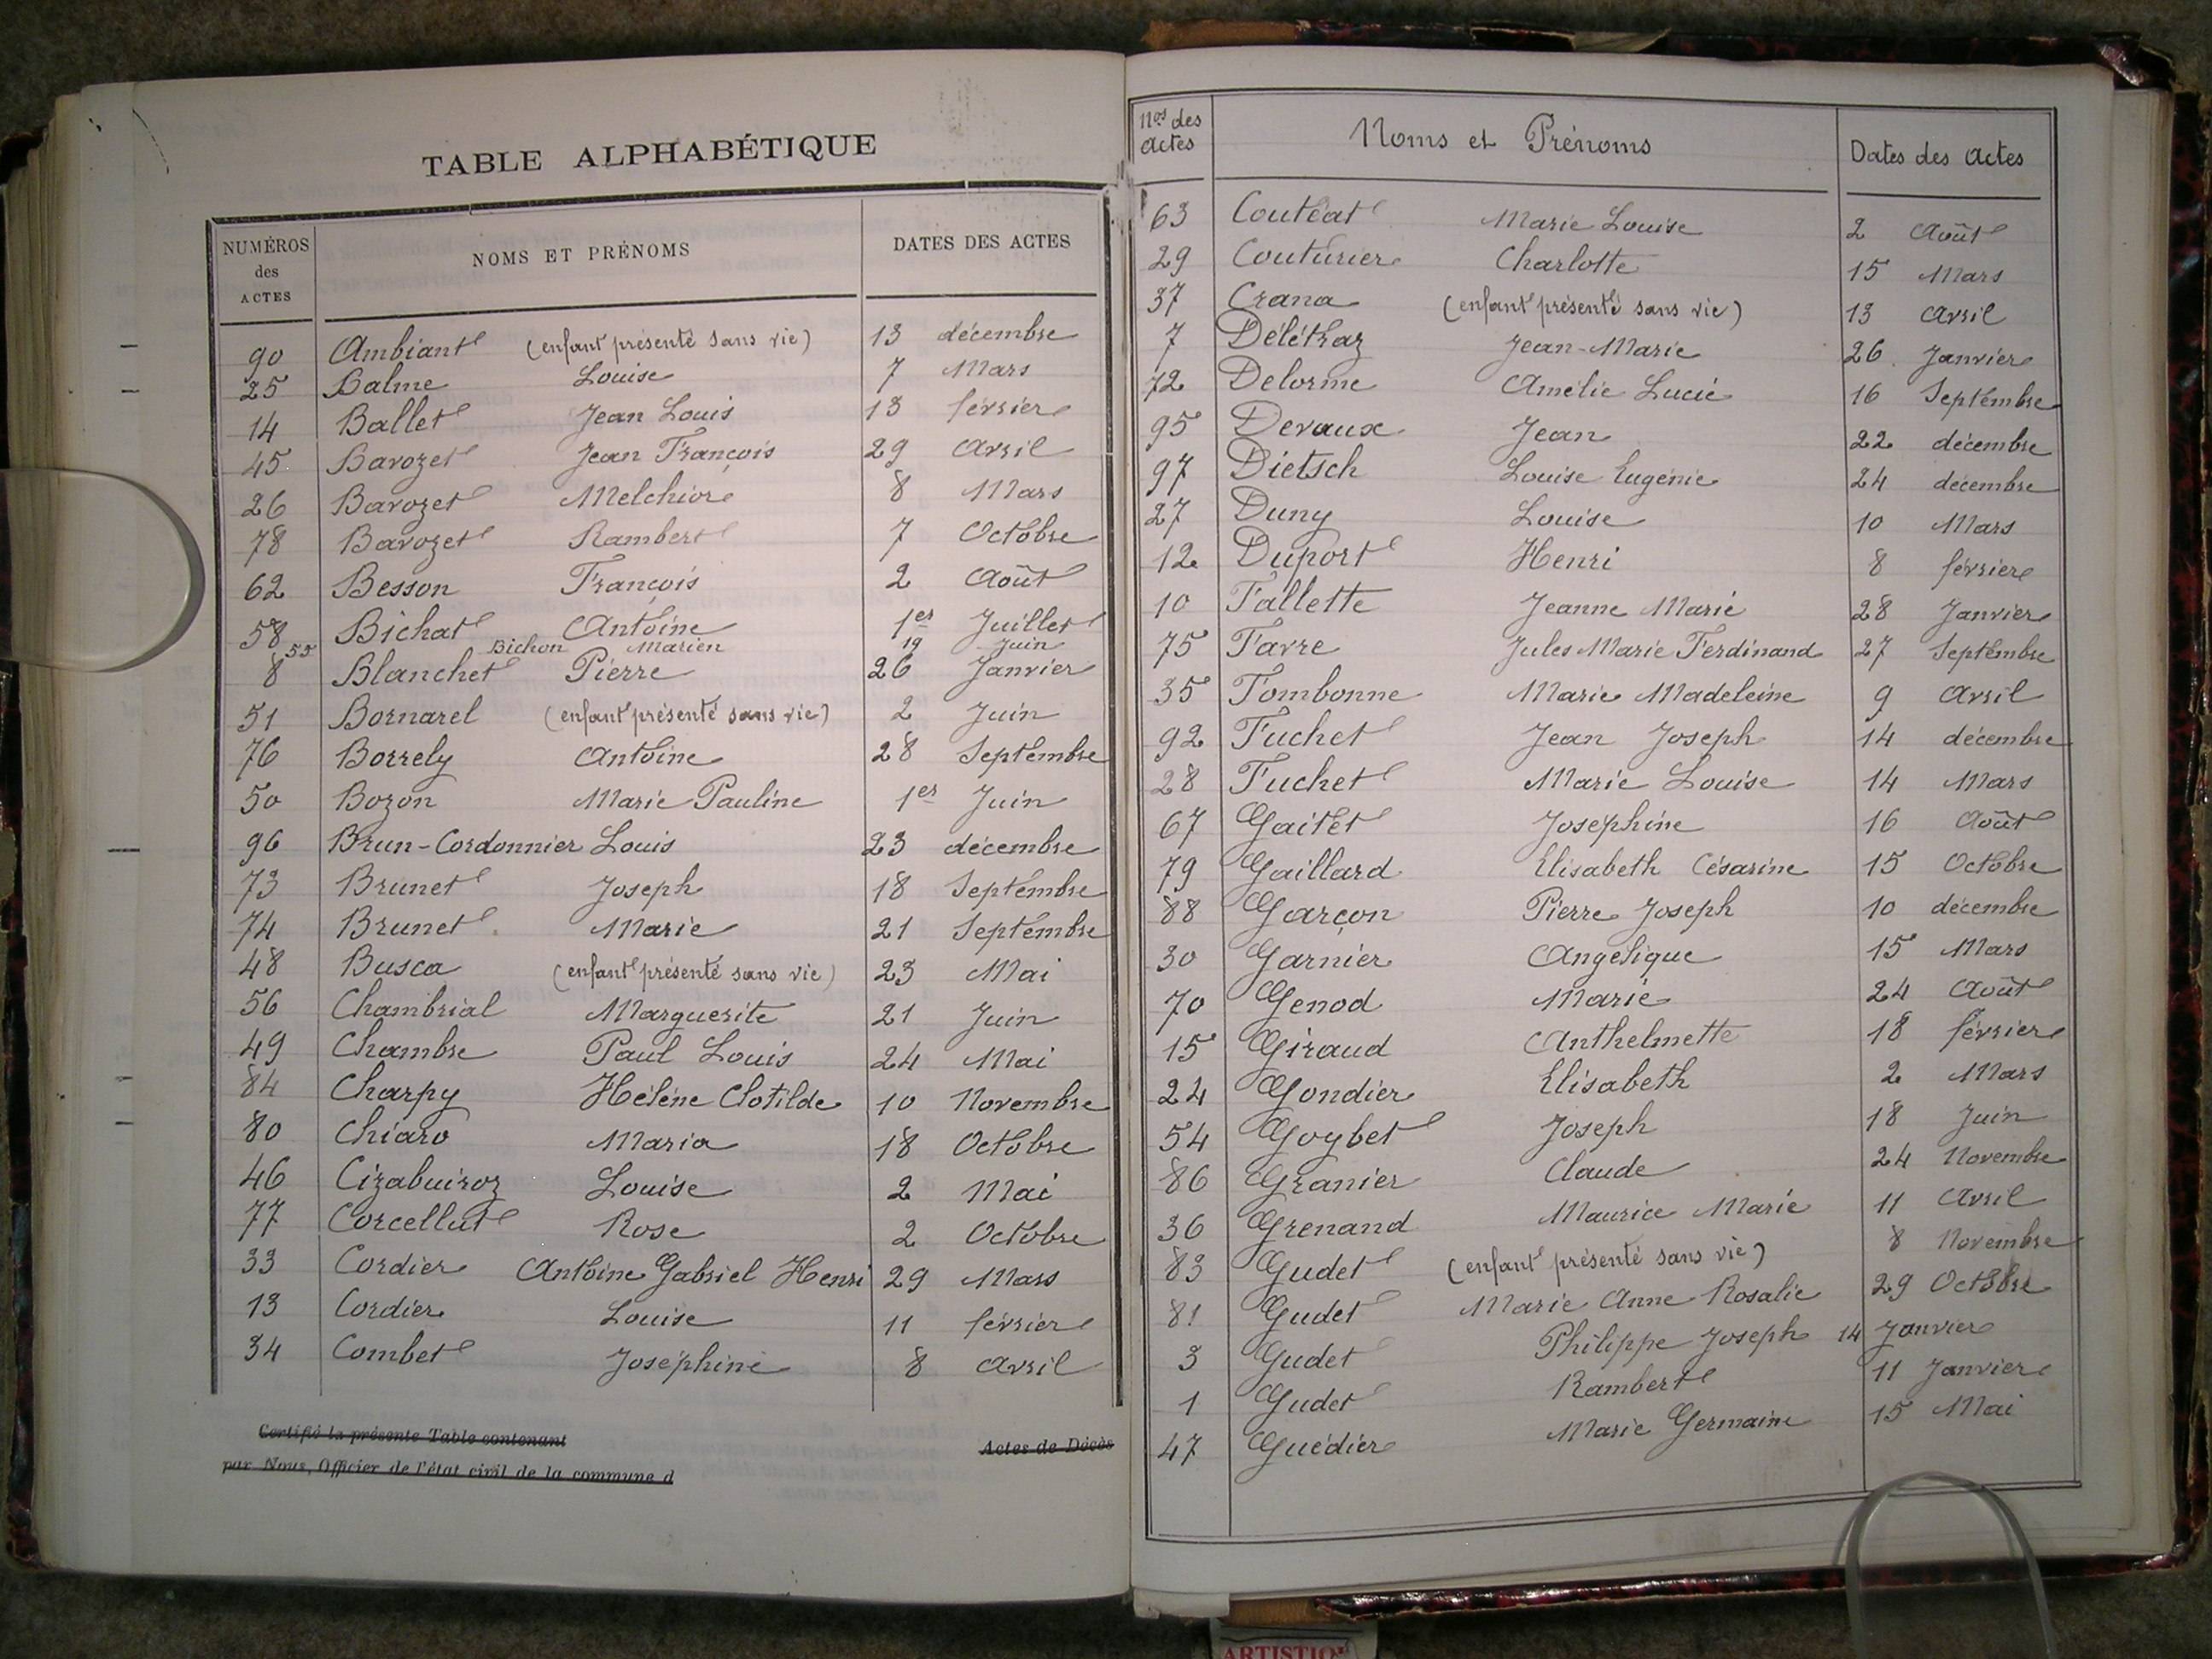 TABLE ALPHABÉTIQUE
NUMÉROS des ACTES NOMS ET PRÉNOMS DATES DES ACTES
90 Ambiant (enfant présenté sans vie) 13 décembre
25 Balme Louise 7 Mars
14 Ballet Jean Louis 13 février
45 Barozet Jean François 29 Avril
26 Barozet Melchior 8 Mars
78 Barozet Rambert 7 Octobre
62 Besson François 2 Août
58 Bichat Antoine 1er Juillet
55 Bichon Marien 19 Juin
8 Blanchet Pierre 26 Janvier
51 Bornarel (enfant présenté sans vie) 2 Juin
76 Borrely Antoine 28 Septembre
50 Bozon Marie Pauline 1er Juin
96 Brun-Cordonnier Louis 23 décembre
73 Brunet Joseph 18 Septembre
74 Brunet Marie 21 Septembre
48 Busca (enfant présenté sans vie) 23 Mai
56 Chambrial Marguerite 21 Juin
49 Chambre Paul Louis 24 Mai
84 Charpy Hélène Clotilde 10 Novembre
80 Chiaro Maria 18 Octobre
46 Cizabuiroz Louise 2 Mai
77 Corcellut Rose 2 Octobre
33 Cordier Antoine Gabriel Henri 29 Mars
13 Cordier Louise 11 février
34 Combet Joséphine 8 Avril
Certifié la présente Table contenant Actes de Décès
par Nous, Officier de l'état civil de la commune d
Nos des Actes Noms et Prénoms Dates des Actes
63 Coutéat Marie Louise 2 Août
29 Couturier Charlotte 15 Mars
37 Crana (enfant présenté sans vie) 13 Avril
7 Déléthaz Jean-Marie 26 Janvier
72 Delorme Amélie Lucie 16 Septembre
95 Devaux Jean 22 décembre
97 Dietsch Louise Eugénie 24 décembre
27 Duny Louise 10 Mars
12 Duport Henri 8 février
10 Fallette Jeanne Marie 28 Janvier
75 Favre Jules Marie Ferdinand 27 Septembre
35 Fombonne Marie Madeleine 9 Avril
92 Fuchet Jean Joseph 14 décembre
28 Fuchet Marie Louise 14 Mars
67 Gaitet Joséphine 16 Août
79 Gaillard Elisabeth Césarine 15 Octobre
88 Garçon Pierre Joseph 10 décembre
30 Garnier Angélique 15 Mars
70 Genod Marie 24 Août
15 Giraud Anthelmette 18 février
24 Gondier Elisabeth 2 Mars
54 Goybet Joseph 18 Juin
86 Granier Claude 24 Novembre
36 Grenand Maurice Marie 11 Avril
83 Gudet (enfant présenté sans vie) 8 Novembre
81 Gudet Marie Anne Rosalie 29 Octobre
3 Gudet Philippe Joseph 14 Janvier
1 Gudet Rambert 11 Janvier
47 Guédier Marie Germaine 15 Mai
ARTISTIQU